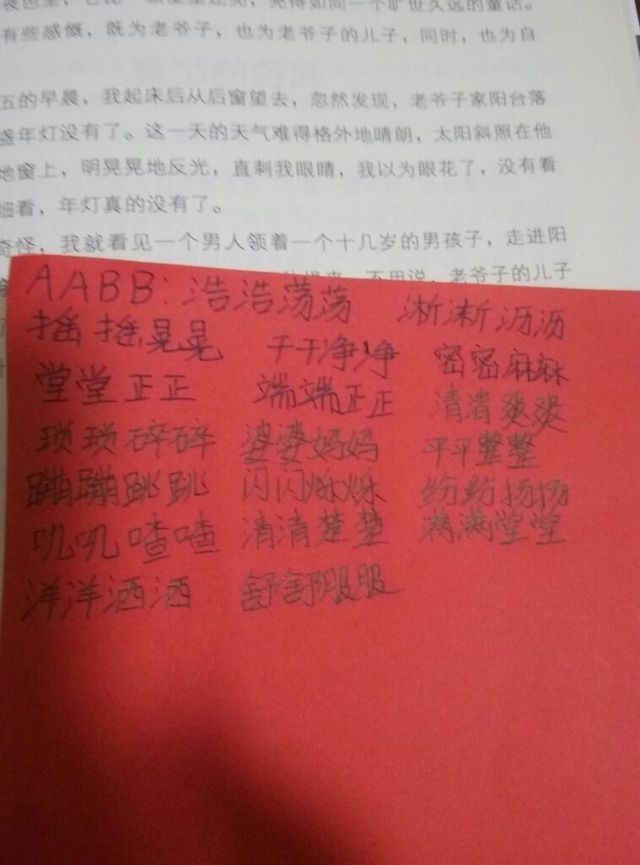 有些感慨，既为老爷子，也为老爷子的儿子，同时，也为自
五的早晨，我起床后从后窗望去，忽然发现，老爷子家阳台落
盏年灯没有了。这一天的天气难得格外地晴朗，太阳斜照在他
地窗上，明晃晃地反光，直刺我眼睛，我以为眼花了，没有看
细看，年灯真的没有了。
奇怪，我就看见一个男人领着一个十几岁的男孩子，走进阳
不用说，老爷子的儿子
AABB：浩浩荡荡 淅淅沥沥
摇摇晃晃 干干净净 密密麻麻
堂堂正正 端端正正 清清爽爽
琐琐碎碎 婆婆妈妈 平平整整
蹦蹦跳跳 闪闪烁烁 纷纷扬扬
叽叽喳喳 清清楚楚 满满堂堂
洋洋洒洒 舒舒服服